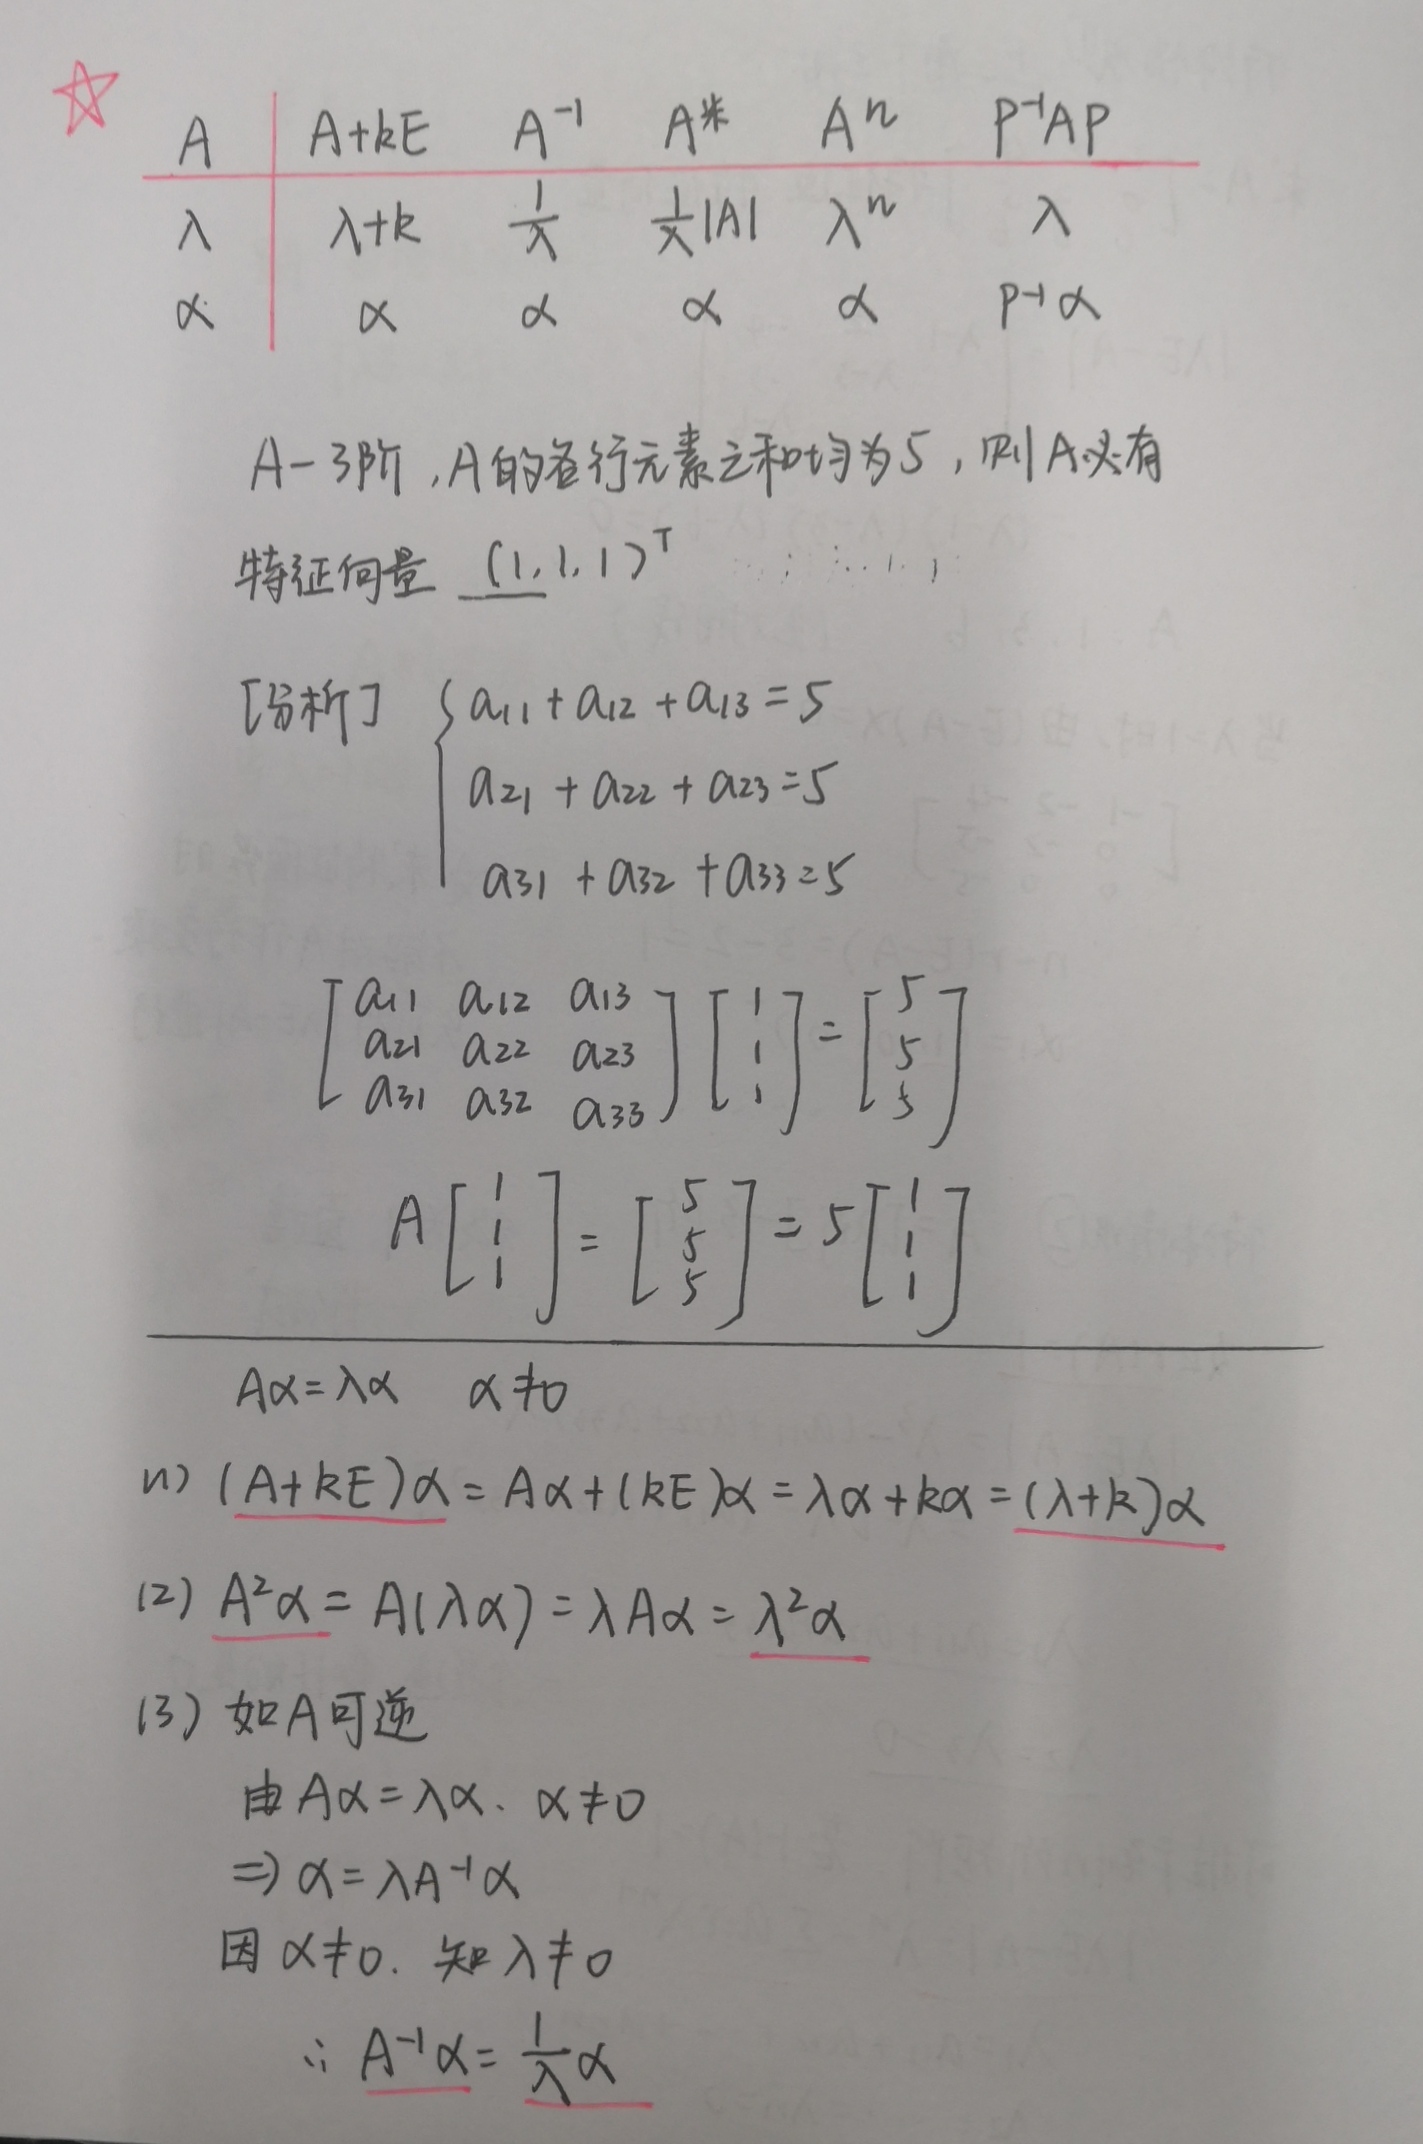 A A+kE A⁻¹ A* Aⁿ P⁻¹AP
λ λ+k 1/λ 1/λ|A| λⁿ λ
α α α α α P⁻¹α
A-3阶,A的各行元素之和均为5,则A必有
特征向量 (1,1,1)ᵀ
[分析] { a₁₁+a₁₂+a₁₃=5
a₂₁+a₂₂+a₂₃=5
a₃₁+a₃₂+a₃₃=5
[a₁₁ a₁₂ a₁₃] [1] = [5]
[a₂₁ a₂₂ a₂₃] [1] [5]
[a₃₁ a₃₂ a₃₃] [1] [5]
A[1] = [5] = 5[1]
[1] [5] [1]
[1] [5] [1]
Aα=λα α≠0
(1) (A+kE)α=Aα+(kE)α=λα+kα=(λ+k)α
(2) A²α=A(λα)=λAα=λ²α
(3) 如A可逆
由Aα=λα、α≠0
⇒α=λA⁻¹α
因α≠0.知λ≠0
∴ A⁻¹α=1/λ α